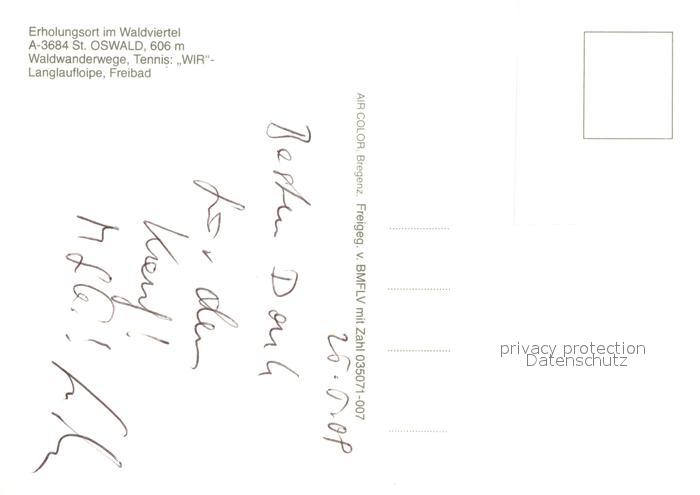 Erholungsort im Waldviertel
A-3684 St. OSWALD, 606 m
Waldwanderwege, Tennis: „WIR“-
Langlaufloipe, Freibad
AIR COLOR, Bregenz. Freigeg. v. BMFLV mit Zahl 035071-007
Besten Dank
für den
Kauf!
privacy protection
Datenschutz